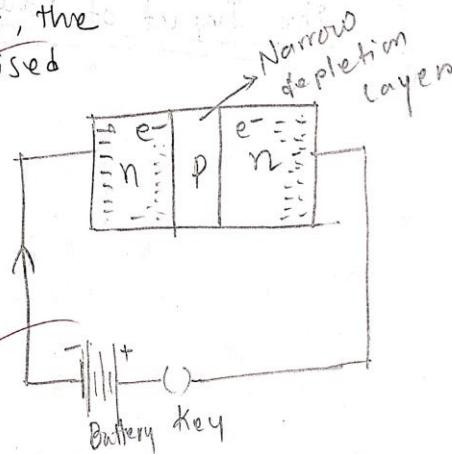 , the
ised
Narrow
depletion
layer
e-
n
p
e-
n
- +
Battery Key